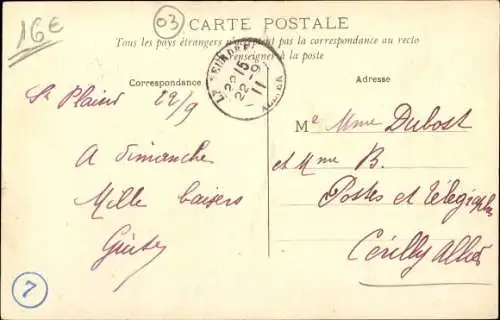 16€
03
CARTE POSTALE
Tous les pays étrangers n'acceptent pas la correspondance au recto
(se renseigner à la poste)
Correspondance
Adresse
15
22-9
11
ALLIER
22/9
A dimanche
Mille baisers
M e Mme Dubost
et Mme B.
Postes et Télégraphes
Cérilly Allier
7